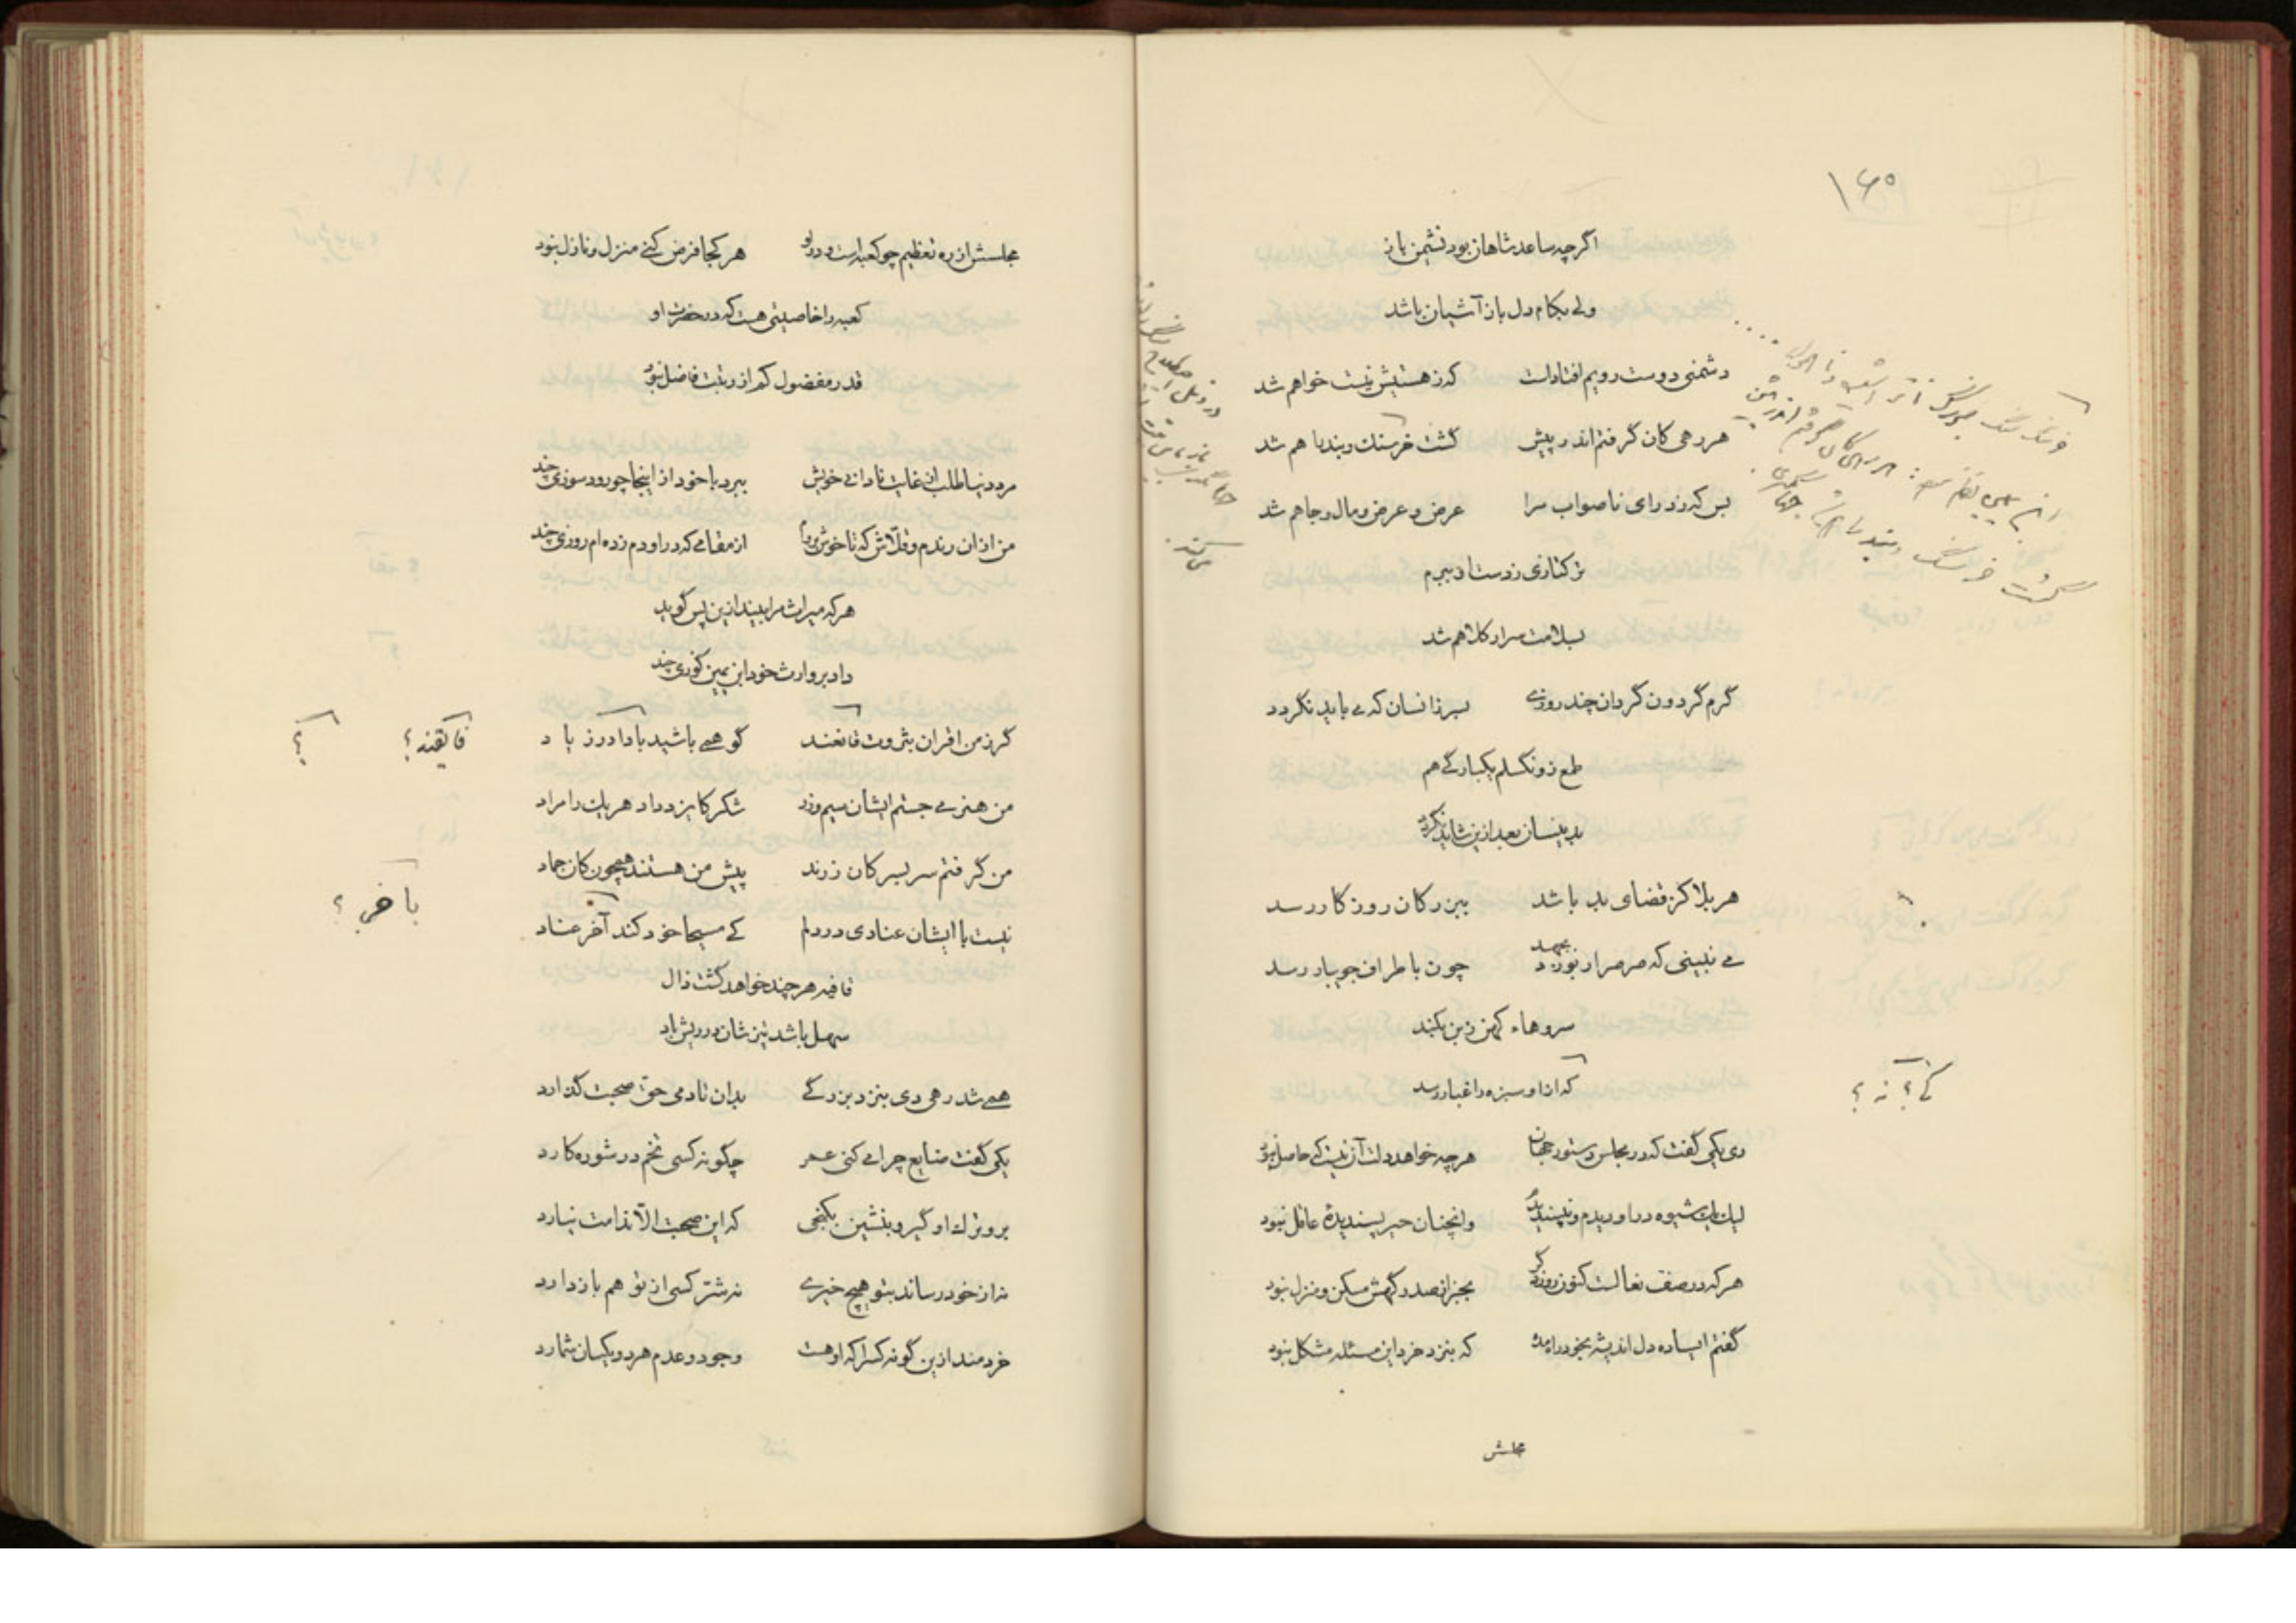 ۱۶۰
اگرچه ساعد شاهان بود نشیمن باز
ولی بکام دل باز آشیان باشد
دشمنی دوست رویم افتادست که ز هستیش نیست خواهم شد
هر رهی کان گرفتم اندر پیش گشت خرسنك وبند با هم شد
بس که زد رای ناصواب مرا عرض و عرض ومال وجاهم شد
بسلامت سر ار کلاهم شد
گرم گردون گردان چند روزی بسر زانسان که می باید نگردد
طمع زو نگسلم یکبارگی هم
بدینسان بعد ازین شاید نگردد
هر بلا کز قضای بد باشد ببزرکان روزکار رسد
می نبینی که صرصر ار بوزد چون باطراف جویبار رسد
بجهد
سروهاء کهن ز بن بکند
که ازاو سبزه را غبار رسد
کی؟ نه؟
دی یکی گفت که در مجلس دستور جهان هرچه خواهد دلت آن نیست که حاصل نبود
لیك یك شیوه در او دیدم و نپسندیدم وانچنان خیر پسندیدهٔ عاقل نبود
هرکه در صف نعالست کنون روز دگر بجز از صدر گهش مسکن ومنزل نبود
گفتم ای ساده دل اندیشه بخود راه مده که بنزد خرد این مسئله مشکل نبود
مجلسش
مجلسش از ره تعظیم چو کعبه است و درو هر کجا فرض کنی منزل ونازل نبود
کعبه را خاصیتی هست که در حضرت او
قدر مفضول کم از رتبت فاضل نبود
مرد دنیا طلب از غایت نادانی خویش ببرد با خود از اینجا چو رود سوزی چند
من ازان رندم وقلّاش که تا خوش بودم از مقامی که در او دم زده ام روزی چند
هرکه میراث مرا بیند ازین پس گوید
داد بر وارث خود ابن یمین کوزی چند
گر ز من اقران بثروت فائقند گو همی باشید باداد رز باد
فائقند؟ ؟
من هنر می جستم ایشان سیم وزر شکر کایزد داد هر یك را مراد
من گرفتم سر بسر کان زرند پیش من هستند همچون کان جماد
نیست با ایشان عنادی در دلم کی مسیحا خود کند آخر عناد
با خر؟
قافیه هرچند خواهد گشت ذال
سهل باشد نیزشان در ریش باد
همی شد رهی دی بنزد بزرگی بدان تا دمی حق صحبت گذارد
یکی گفت ضایع چرا می کنی عمر چگونه کسی تخم در شوره کارد
برو ترك او گیر وبنشین بکنجی که این صحبت الّا ندامت نیارد
نه از خود رساند بتو هیچ خیری نه شتر کسی از تو هم بازدارد
خردمند ازین گونه کسرا که او هست وجود وعدم هردو یکسان شمارد